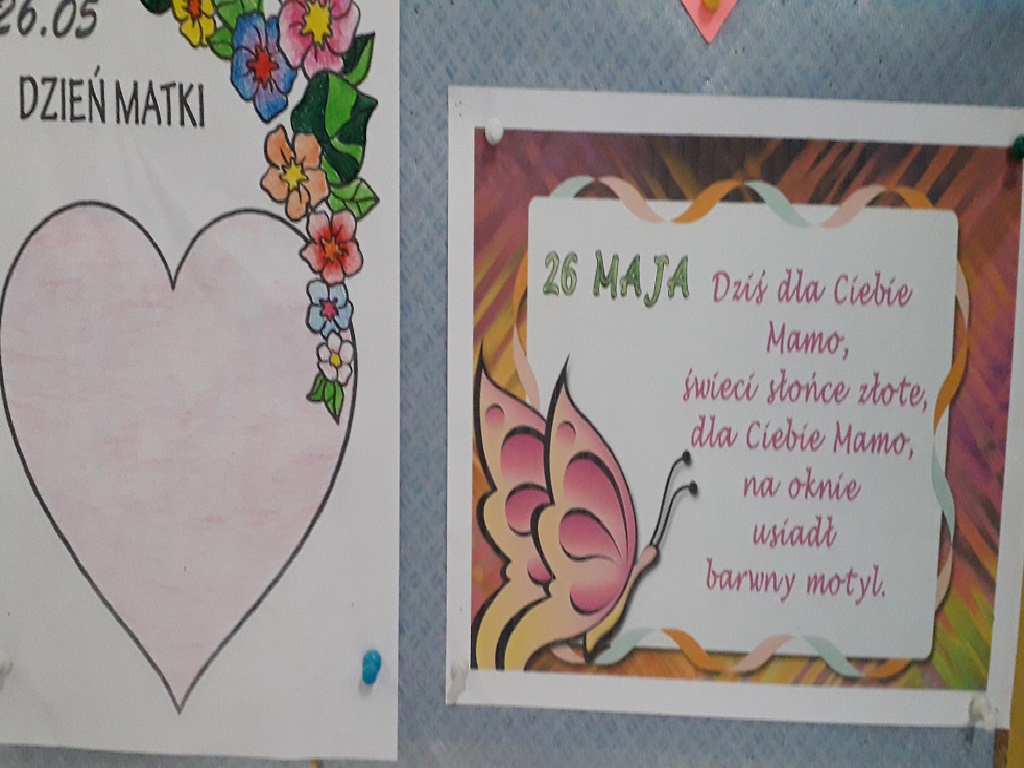 26.05
DZIEŃ MATKI
26 MAJA
Dziś dla Ciebie
Mamo,
świeci słońce złote,
dla Ciebie Mamo,
na oknie
usiadł
barwny motyl.